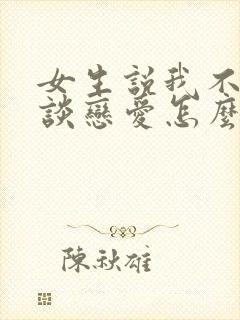 女生説我不
談戀愛怎麼
陳秋雄